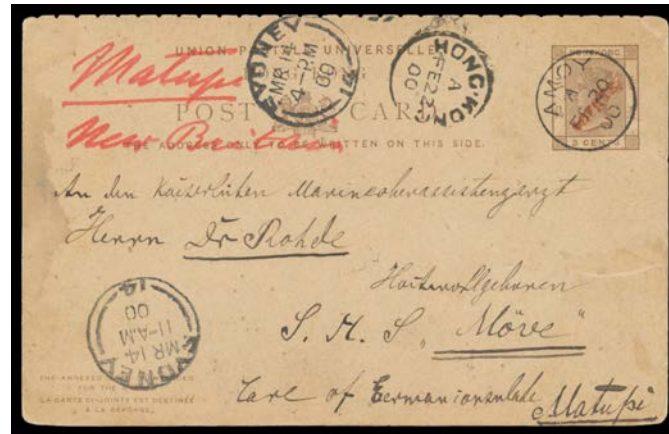 UNION POSTALE UNIVERSELLE
HONGKONG
POST CARD
THE ADDRESS ONLY TO BE WRITTEN ON THIS SIDE.
3 CENTS
Matupi
New Britain
SYDNEY
MR 14
4-PM
00
14
HONGKONG
A
FE 22
00
AMOY
A
FE 20
00
An den Kaiserlichen Marineoberassistenzarzt
Herrn Dr Rohde
Hochwohlgeboren
S. M. S. "Möve"
Care of German
Matupi
SYDNEY
MR 14
11-AM
00
14
THE ANNEXED
FOR THE
LA CARTE CI-JOINTE EST DESTINÉE
À LA RÉPONSE.